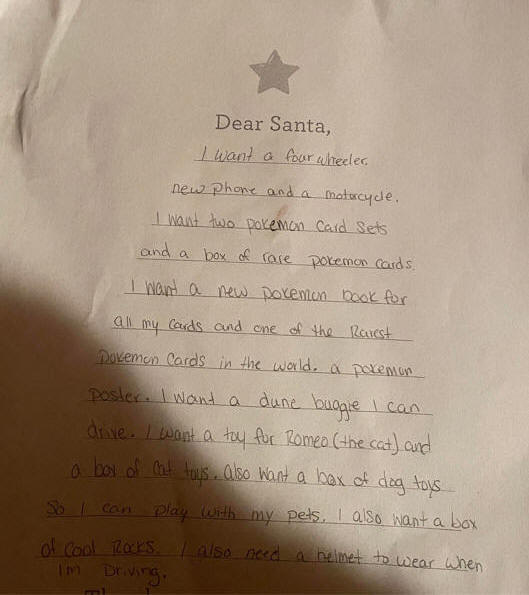 Dear Santa,
I want a four wheeler.
new phone and a motorcycle.
I want two pokemon card sets
and a box of rare pokemon cards.
I want a new pokemon book for
all my cards and one of the Rarest
Pokemon Cards in the world. a pokemon
poster. I want a dune buggie I can
drive. I want a toy for Romeo (the cat) and
a box of cat toys. also want a box of dog toys
So I can play with my pets. I also want a box
of cool Rocks. I also need a helmet to wear when
I'm Driving.